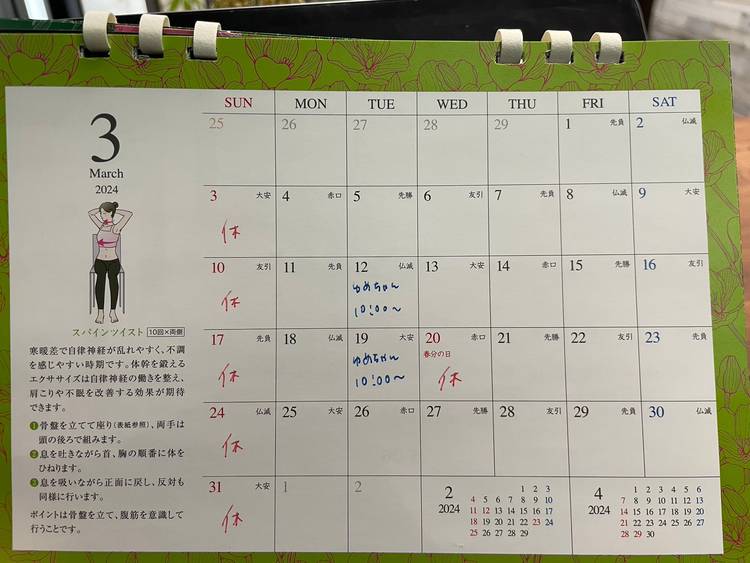 3
March
2024
スパインツイスト 10回×両側
寒暖差で自律神経が乱れやすく、不調
を感じやすい時期です。体幹を鍛える
エクササイズは自律神経の働きを整え、
肩こりや不眠を改善する効果が期待
できます。
❶骨盤を立てて座り(表紙参照)、両手は
頭の後ろで組みます。
❷息を吐きながら首、胸の順番に体を
ひねります。
❸息を吸いながら正面に戻し、反対も
同様に行います。
ポイントは骨盤を立て、腹筋を意識して
行うことです。
SUN MON TUE WED THU FRI SAT
25 26 27 28 29 1 先負 2 仏滅
3 大安 4 赤口 5 先勝 6 友引 7 先負 8 仏滅 9 大安
休
10 友引 11 先負 12 仏滅 13 大安 14 赤口 15 先勝 16 友引
休 ゆめちゃん
10:00〜
17 先負 18 仏滅 19 大安 20 赤口 21 先勝 22 友引 23 先負
春分の日
休 ゆめちゃん 休
10:00〜
24 仏滅 25 大安 26 赤口 27 先勝 28 友引 29 先負 30 仏滅
休
31 大安 1 2
休
2
2024
1 2 3
4 5 6 7 8 9 10
11 12 13 14 15 16 17
18 19 20 21 22 23 24
25 26 27 28 29
4
2024
1 2 3 4 5 6
7 8 9 10 11 12 13
14 15 16 17 18 19 20
21 22 23 24 25 26 27
28 29 30